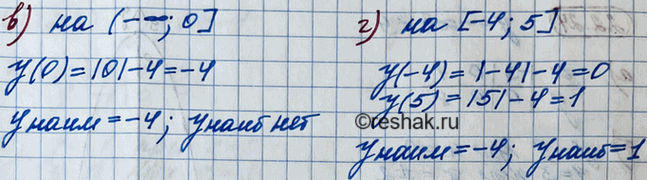 в) на (-∞; 0]
y(0) = |0| - 4 = -4
y наим = -4; y наиб нет
г) на [-4; 5]
y(-4) = |-4| - 4 = 0
y(5) = |5| - 4 = 1
©reshak.ru
y наим = -4; y наиб = 1